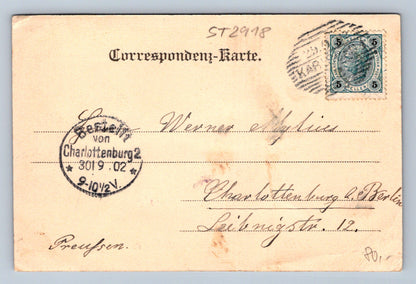 ST2918
Correspondenz-Karte.
5 5
5 5
KAR
Werner Mylius
Bestellt
von
Charlottenburg 2
* 30 1 9. 02 *
9-10½V.
Charlottenburg b. Berlin
Leibnigstr. 12.
Preussen.
80,-